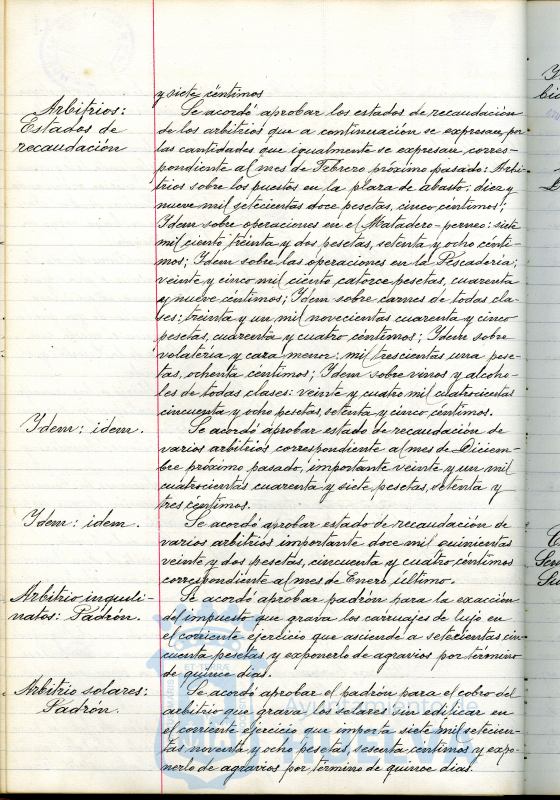 y siete céntimos
Arbitrios:
Estados de
recaudación
Se acordó aprobar los estados de recaudación
de los arbitrios que a continuación se expresan, por
las cantidades que igualmente se expresan, corres-
pondiente al mes de Febrero próximo pasado: Arbi-
trios sobre los puestos en la plaza de abasto, diez y
nueve mil setecientas doce pesetas, cinco céntimos;
Ydem sobre operaciones en el Matadero-perneo: siete
mil ciento treinta y dos pesetas, setenta y ocho cénti-
mos; Ydem sobre las operaciones en la Pescaderia;
veinte y cinco mil ciento catorce pesetas, cuarenta
y nueve céntimos; Ydem sobre carnes de todas cla-
ses: treinta y un mil novecientas cuarenta y cinco
pesetas, cuarenta y cuatro céntimos; Ydem sobre
volateria y caza menor: mil trescientas una pese-
tas, ochenta céntimos; Ydem sobre vinos y alcoho-
les de todas clases: veinte y cuatro mil cuatrocientas
cincuenta y ocho pesetas, setenta y cinco céntimos.
Ydem: idem.
Se acordó aprobar estado de recaudación de
varios arbitrios correspondiente al mes de Diciem-
bre próximo pasado, importante veinte y un mil
cuatrocientas cuarenta y siete pesetas, setenta y
tres céntimos.
Ydem: idem.
Se acordó aprobar estado de recaudación de
varios arbitrios importante doce mil quinientas
veinte y dos pesetas, cincuenta y cuatro céntimos
correspondiente al mes de Enero último.
Arbitrio inquili-
natos: Padrón.
Se acordó aprobar padrón para la exacción
del impuesto que grava los carruajes de lujo en
el corriente ejercicio que asciende a setecientas cin-
cuenta pesetas y exponerlo de agravios por término
de quince dias.
Arbitrio solares:
Padrón.
Se acordó aprobar el padrón para el cobro del
arbitrio que grava los solares sin edificar en
el corriente ejercicio que importa siete mil setecien-
tas noventa y ocho pesetas, sesenta céntimos y expo-
nerlo de agravios por término de quince dias.
Ayuntamiento de
HUELVA